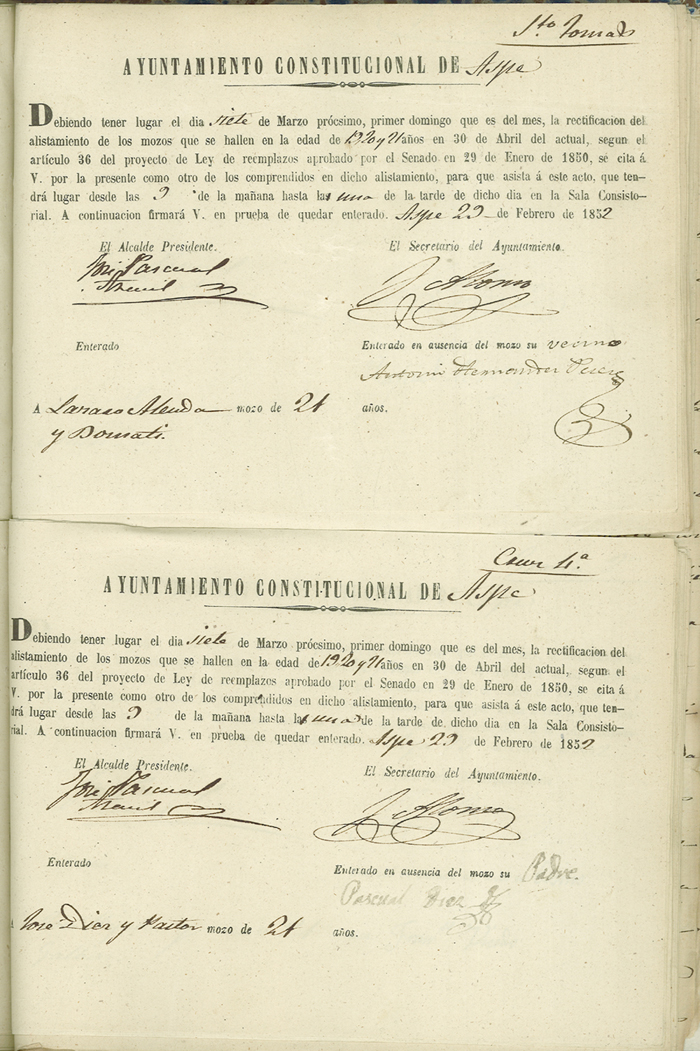 Sto Tomas
AYUNTAMIENTO CONSTITUCIONAL DE Aspe
Debiendo tener lugar el dia siete de Marzo prócsimo, primer domingo que es del mes, la rectificacion del
alistamiento de los mozos que se hallen en la edad de 19 20 y 21 años en 30 de Abril del actual, segun el
artículo 36 del proyecto de Ley de reemplazos aprobado por el Senado en 29 de Enero de 1850, se cita á
V. por la presente como otro de los comprendidos en dicho alistamiento, para que asista á este acto, que ten-
drá lugar desde las 9 de la mañana hasta las una de la tarde de dicho dia en la Sala Consisto-
rial. A continuacion firmará V. en prueba de quedar enterado. Aspe 29 de Febrero de 1852
El Alcalde Presidente. El Secretario del Ayuntamiento.
José Pascual
J. Alonso
Enterado Enterado en ausencia del mozo su vecino
Antonio Hernandez Perez
A Lazaro Alenda mozo de 21 años.
y Bonmati.
Cruz 4.a
AYUNTAMIENTO CONSTITUCIONAL DE Aspe
Debiendo tener lugar el dia siete de Marzo prócsimo, primer domingo que es del mes, la rectificacion del
alistamiento de los mozos que se hallen en la edad de 19 20 y 21 años en 30 de Abril del actual, segun el
artículo 36 del proyecto de Ley de reemplazos aprobado por el Senado en 29 de Enero de 1850, se cita á
V. por la presente como otro de los comprendidos en dicho alistamiento, para que asista á este acto, que ten-
drá lugar desde las 9 de la mañana hasta las una de la tarde de dicho dia en la Sala Consisto-
rial. A continuacion firmará V. en prueba de quedar enterado. Aspe 29 de Febrero de 1852
El Alcalde Presidente. El Secretario del Ayuntamiento.
José Pascual
J. Alonso
Enterado Enterado en ausencia del mozo su Padre.
Pascual Diez
A Jose Diez y Pastor mozo de 21 años.